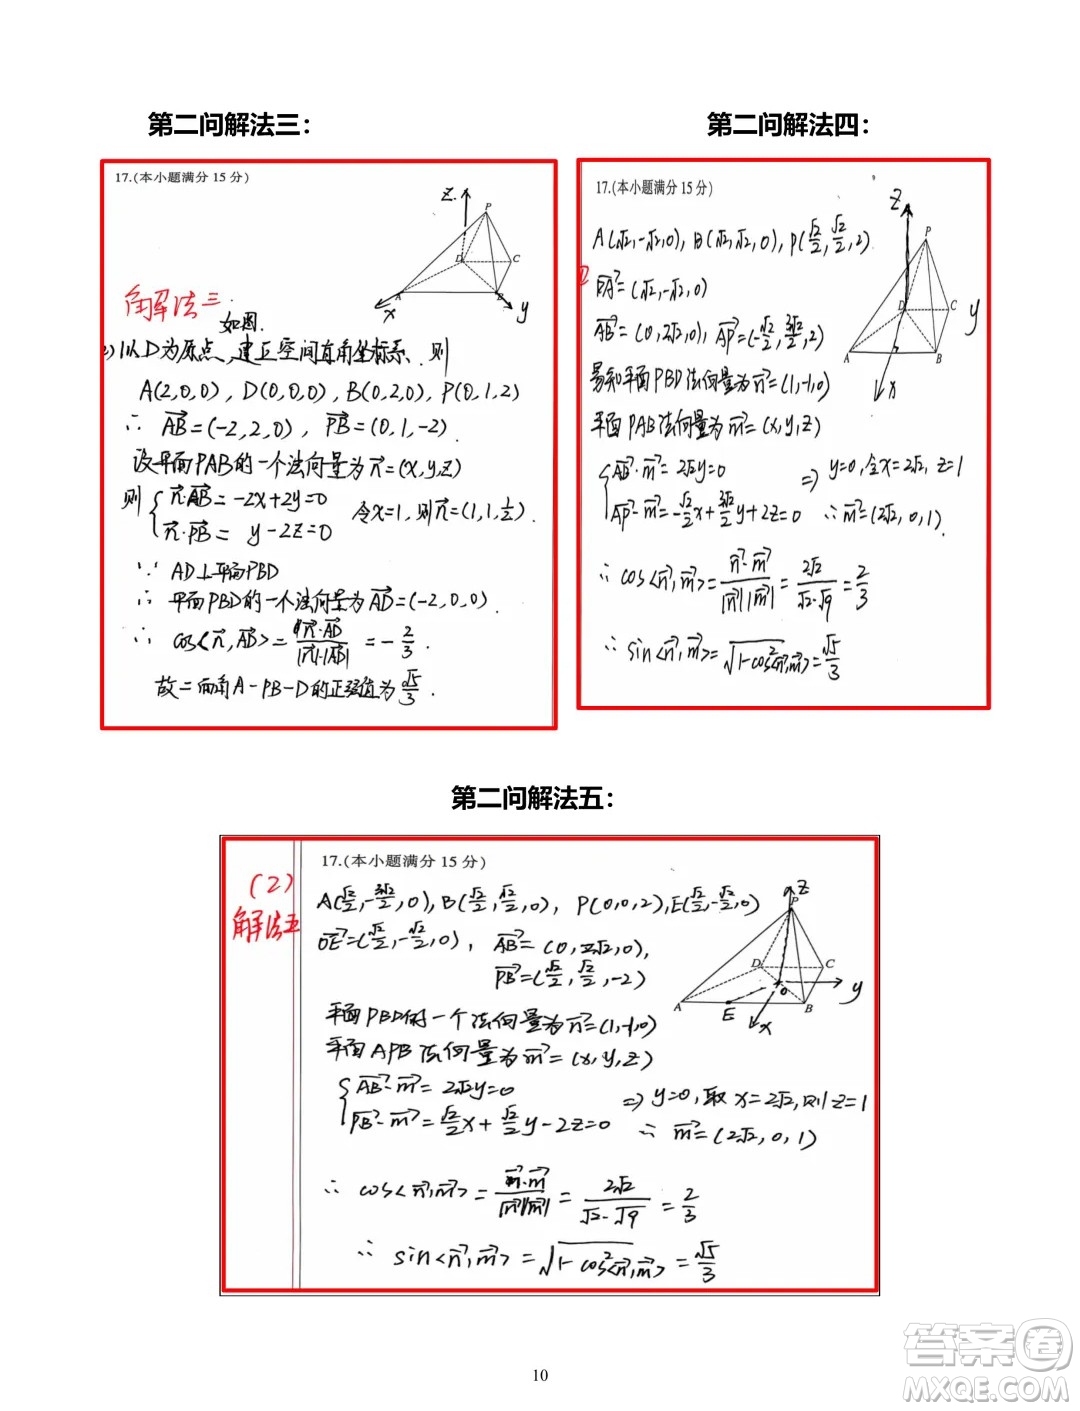 第二问解法三：
17.(本小题满分 15 分)
Z
P
D
C
A
B
x
y
角解法三
如图.
(2)以D为原点、建立空间直角坐标系、则
A(2,0,0), D(0,0,0), B(0,2,0), P(0,1,2)
∴ AB→=(-2,2,0), PB→=(0,1,-2).
设平面PAB的一个法向量为n→=(x,y,z)
则 { n→·AB→=-2x+2y=0
n→·PB→= y-2z=0
令x=1,则n→=(1,1,1/2).
∵ AD⊥平面PBD
∴ 平面PBD的一个法向量为AD→=(-2,0,0)
∴ cos<n→,AB→>= n→·AB→/|n→|·|AB→| =-2/3.
故二面角A-PB-D的正弦值为√5/3.
第二问解法四：
17.(本小题满分 15 分)
Z
P
D
C
y
A
B
x
A(√2,-√2,0), B(√2,√2,0), P(√2/2,√2/2,2)
DA→=(√2,-√2,0)
AB→=(0,2√2,0), AP→=(-√2/2,3√2/2,2)
易知平面PBD法向量为n→=(1,-1,0)
平面PAB法向量为m→=(x,y,z)
{ AB→·m→=2√2y=0
AP→·m→=-√2/2x+3√2/2y+2z=0
⇒ y=0,令x=2√2, z=1
∴ m→=(2√2,0,1).
∴ cos<n→,m→>= n→·m→/|n→||m→| = 2√2/√2·√9 = 2/3
∴ sin<n→,m→>=√1-cos²<n→,m→>=√5/3
第二问解法五：
17.(本小题满分 15 分)
(2)
解法五
A(√2/2,-3√2/2,0), B(√2/2,√2/2,0), P(0,0,2), E(√2/2,-√2/2,0)
OE→=(√2/2,-√2/2,0), AB→=(0,2√2,0),
PB→=(√2/2,√2/2,-2)
z
P
D
C
O
y
A
E
B
x
平面PBD的一个法向量为n→=(1,-1,0)
平面APB法向量为m→=(x,y,z)
{ AB→·m→=2√2y=0
PB→·m→=√2/2x+√2/2y-2z=0
⇒ y=0,取x=2√2,则z=1
∴ m→=(2√2,0,1)
∴ cos<n→,m→>= n→·m→/|n→||m→| = 2√2/√2·√9 = 2/3
∴ sin<n→,m→>=√1-cos²<n→,m→>=√5/3
10
答案卷
MXQE.COM